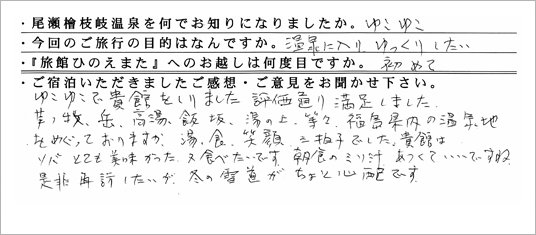 ・尾瀬檜枝岐温泉を何でお知りになりましたか。ゆこゆこ
・今回のご旅行の目的はなんですか。温泉に入り ゆっくりしたい
・『旅館ひのえまた』へのお越しは何度目ですか。初めて
・ご宿泊いただきましたご感想・ご意見をお聞かせ下さい。
ゆこゆこで貴館をしりました 評価通り満足しました.
芦ノ牧、岳、高湯、飯坂、湯の上、等々、福島県内の温泉地
をめぐっておりますが 湯、食、笑顔 三拍子でした。貴館は
ソバ とても美味かった 又食べたいです 朝食のミソ汁 あつくて いいですね
是非再訪したいが 冬の雪道がちょと心配です